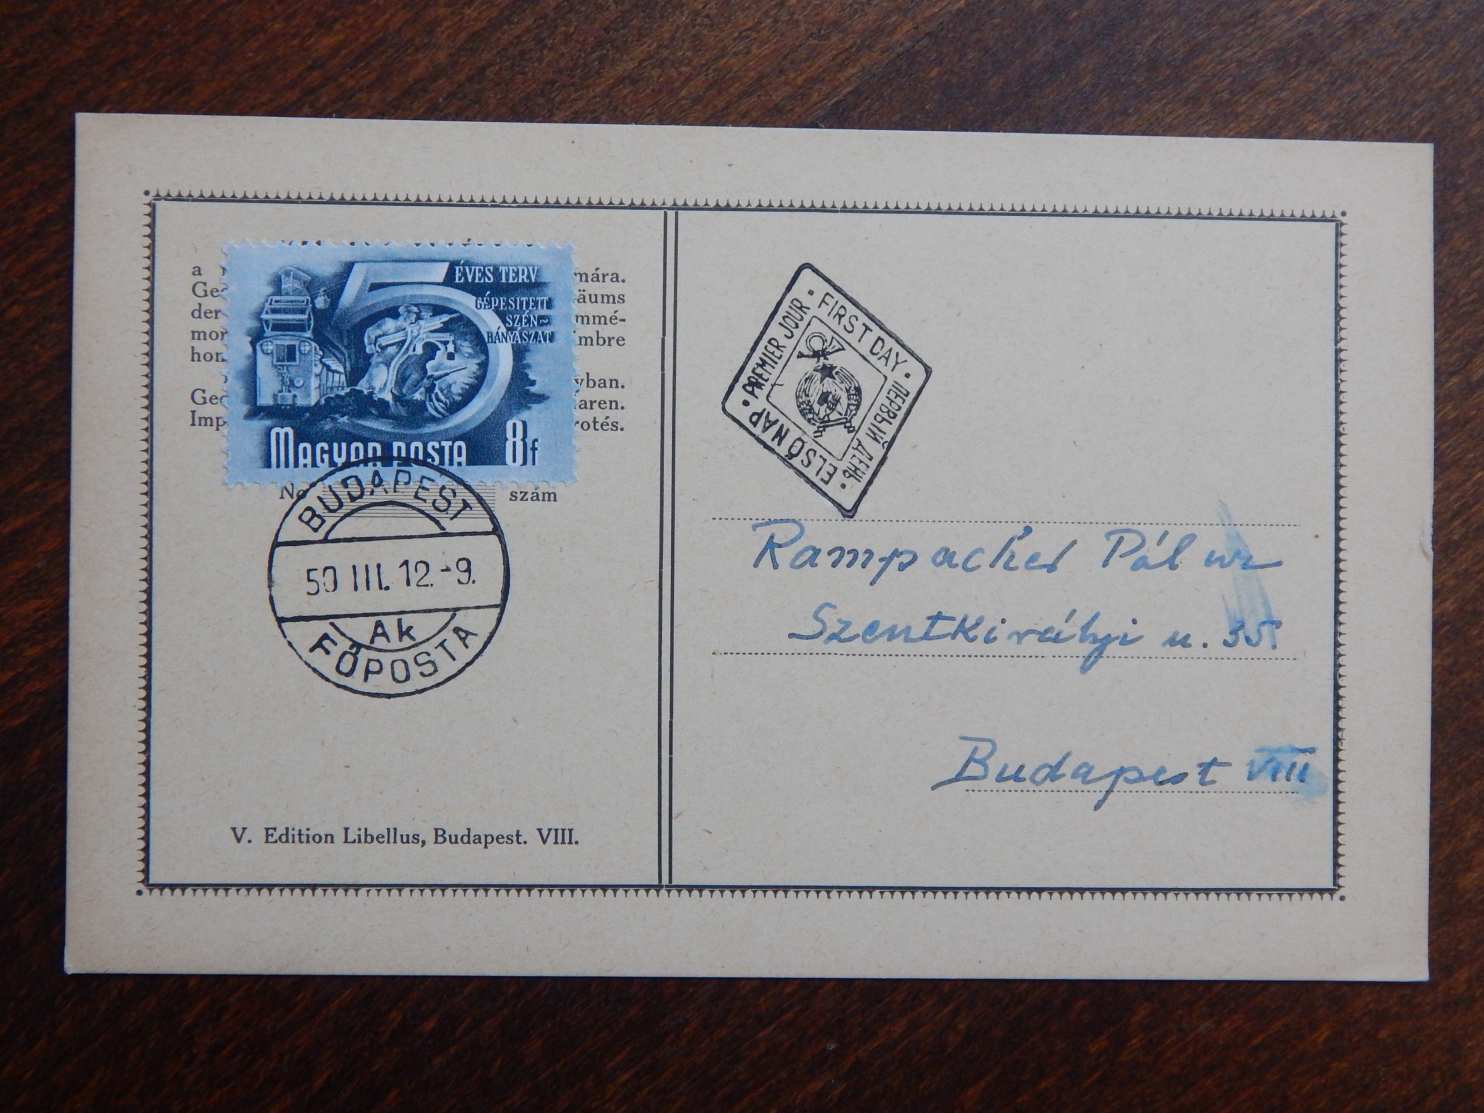 a
mára.
Ge
äums
der
mmé-
mor
imbre
hon
yban.
Ged
aren.
Imp
rotés.
No
szám
5 ÉVES TERV
GÉPESITETT
SZÉN-
BÁNYÁSZAT
MAGYAR POSTA 8f
BUDAPEST
50 III. 12.-9.
Ak
FŐPOSTA
V. Edition Libellus, Budapest. VIII.
PREMIER JOUR · FIRST DAY · ПЕРВЫЙ ДЕНЬ · ELSŐ NAP ·
Rampacher Pál úr
Szentkirályi u. 35.
Budapest VIII